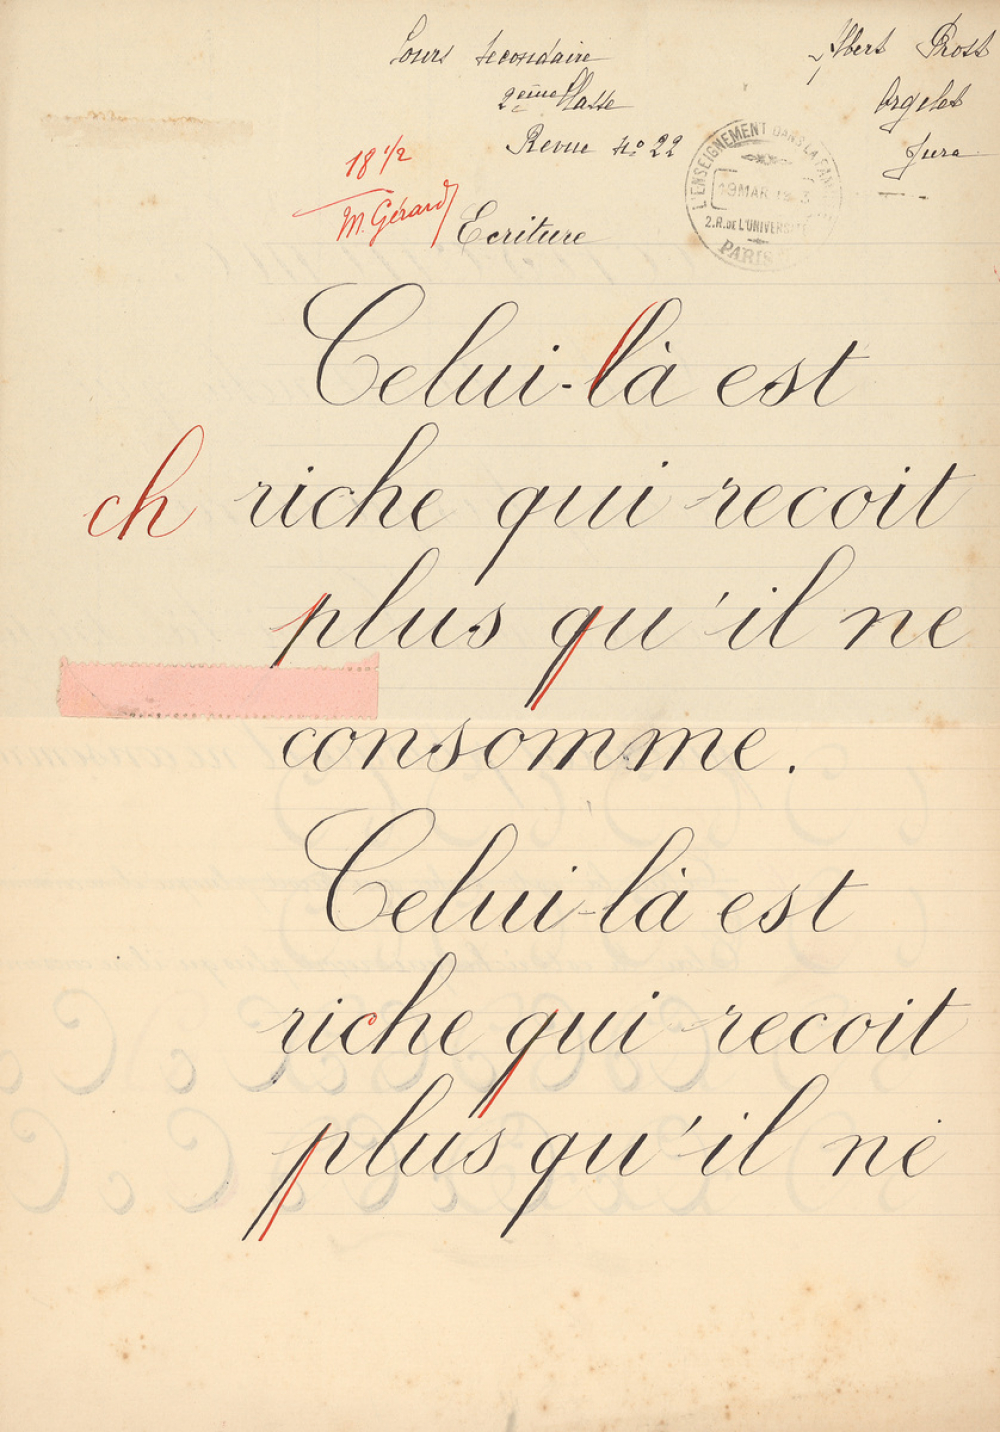 Cours secondaire
2ème Classe
Revue No 22
Albert Prost
Orgelet
Jura
18 1/2
M. Gérard
L'ENSEIGNEMENT DANS LA FAMILLE
2.R.DE L'UNIVERSITÉ
PARIS
Ecriture
Celui-là est
ch riche qui recoit
plus qu'il ne
consomme.
Celui-là est
riche qui recoit
plus qu'il ne